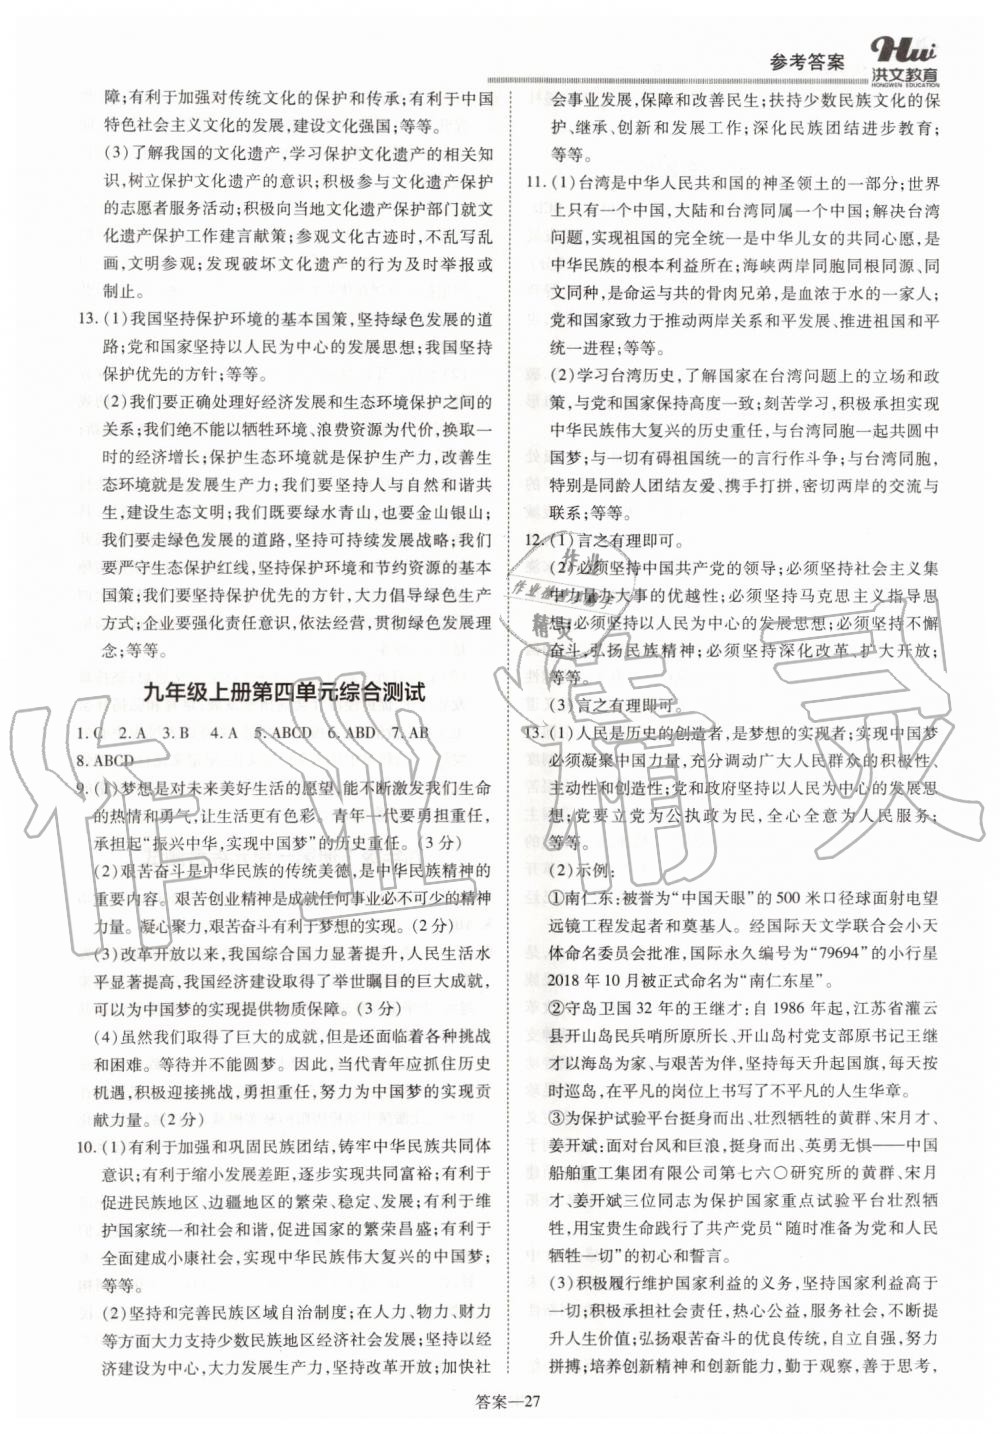 参考答案
Hwi
洪文教育
HONGWEN EDUCATION
障;有利于加强对传统文化的保护和传承;有利于中国
特色社会主义文化的发展,建设文化强国;等等。
(3)了解我国的文化遗产,学习保护文化遗产的相关知
识,树立保护文化遗产的意识;积极参与文化遗产保护
的志愿者服务活动;积极向当地文化遗产保护部门就文
化遗产保护工作建言献策;参观文化古迹时,不乱写乱
画,文明参观;发现破坏文化遗产的行为及时举报或
制止。
13. (1)我国坚持保护环境的基本国策,坚持绿色发展的道
路;党和国家坚持以人民为中心的发展思想;我国坚持
保护优先的方针;等等。
(2)我们要正确处理好经济发展和生态环境保护之间的
关系;我们绝不能以牺牲环境、浪费资源为代价,换取一
时的经济增长;保护生态环境就是保护生产力,改善生
态环境就是发展生产力;我们要坚持人与自然和谐共
生,建设生态文明;我们既要绿水青山,也要金山银山;
我们要走绿色发展的道路,坚持可持续发展战略;我们
要严守生态保护红线,坚持保护环境和节约资源的基本
国策;我们要坚持保护优先的方针,大力倡导绿色生产
方式;企业要强化责任意识,依法经营,贯彻绿色发展理
念;等等。
九年级上册第四单元综合测试
1. C 2. A 3. B 4. A 5. ABCD 6. ABD 7. AB
8. ABCD
9. (1)梦想是对未来美好生活的愿望,能不断激发我们生命
的热情和勇气,让生活更有色彩。青年一代要勇担重任,
承担起“振兴中华,实现中国梦”的历史重任。(3 分)
(2)艰苦奋斗是中华民族的传统美德,是中华民族精神的
重要内容。艰苦创业精神是成就任何事业必不可少的精神
力量。凝心聚力,艰苦奋斗有利于梦想的实现。(2分)
(3)改革开放以来,我国综合国力显著提升,人民生活水
平显著提高,我国经济建设取得了举世瞩目的巨大成就,
可以为中国梦的实现提供物质保障。(3 分)
(4)虽然我们取得了巨大的成就,但是还面临着各种挑战
和困难。等待并不能圆梦。因此,当代青年应抓住历史
机遇,积极迎接挑战,勇担重任,努力为中国梦的实现贡
献力量。(2 分)
10. (1)有利于加强和巩固民族团结,铸牢中华民族共同体
意识;有利于缩小发展差距,逐步实现共同富裕;有利于
促进民族地区、边疆地区的繁荣、稳定、发展;有利于维
护国家统一和社会和谐,促进国家的繁荣昌盛;有利于
全面建成小康社会,实现中华民族伟大复兴的中国梦;
等等。
(2)坚持和完善民族区域自治制度;在人力、物力、财力
等方面大力支持少数民族地区经济社会发展;坚持以经
济建设为中心,大力发展生产力,坚持改革开放;加快社
会事业发展,保障和改善民生;扶持少数民族文化的保
护、继承、创新和发展工作;深化民族团结进步教育;
等等。
11. (1)台湾是中华人民共和国的神圣领土的一部分;世界
上只有一个中国,大陆和台湾同属一个中国;解决台湾
问题,实现祖国的完全统一是中华儿女的共同心愿,是
中华民族的根本利益所在;海峡两岸同胞同根同源、同
文同种,是命运与共的骨肉兄弟,是血浓于水的一家人;
党和国家致力于推动两岸关系和平发展、推进祖国和平
统一进程;等等。
(2)学习台湾历史,了解国家在台湾问题上的立场和政
策,与党和国家保持高度一致;刻苦学习,积极承担实现
中华民族伟大复兴的历史重任,与台湾同胞一起共圆中
国梦;与一切有碍祖国统一的言行作斗争;与台湾同胞,
特别是同龄人团结友爱、携手打拼,密切两岸的交流与
联系;等等。
12. (1)言之有理即可。
(2)必须坚持中国共产党的领导;必须坚持社会主义集
中力量办大事的优越性;必须坚持马克思主义指导思
想;必须坚持以人民为中心的发展思想;必须坚持不懈
奋斗,弘扬民族精神;必须坚持深化改革、扩大开放;
等等。
(3)言之有理即可。
13. (1)人民是历史的创造者,是梦想的实现者;实现中国梦
必须凝聚中国力量,充分调动广大人民群众的积极性、
主动性和创造性;党和政府坚持以人民为中心的发展思
想;党坚持立党为公执政为民,全心全意为人民服务;
等等。
(2)示例:
①南仁东:被誉为“中国天眼”的 500 米口径球面射电望
远镜工程发起者和奠基人。经国际天文学联合会小天
体命名委员会批准,国际永久编号为“79694”的小行星
2018 年 10 月被正式命名为“南仁东星”。
②守岛卫国 32 年的王继才:自 1986 年起,江苏省灌云
县开山岛民兵哨所原所长、开山岛村党支部原书记王继
才以海岛为家、与艰苦为伴,坚持每天升起国旗,每天按
时巡岛,在平凡的岗位上书写了不平凡的人生华章。
③为保护试验平台挺身而出、壮烈牺牲的黄群、宋月才、
姜开斌:面对台风和巨浪,挺身而出、英勇无惧——中国
船舶重工集团有限公司第七六〇研究所的黄群、宋月
才、姜开斌三位同志为保护国家重点试验平台壮烈牺
牲,用宝贵生命践行了共产党员“随时准备为党和人民
牺牲一切”的初心和誓言。
(3)积极履行维护国家利益的义务,坚持国家利益高于
一切;积极承担社会责任,热心公益,服务社会,不断提
升人生价值;弘扬艰苦奋斗的优良传统,自立自强,努力
拼搏;培养创新精神和创新能力,勤于观察,善于思考,
答案—27
作业精灵